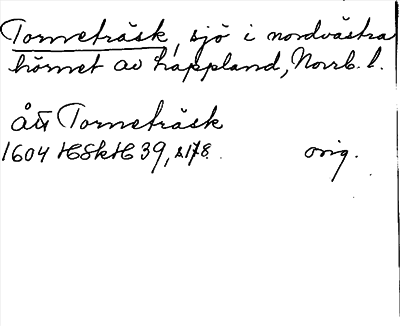 Torneträsk, sjö i nordvästra
hörnet av Lappland, Norrb. l.
åt Torneträsk
1604 HSkH 39, s 178
orig.